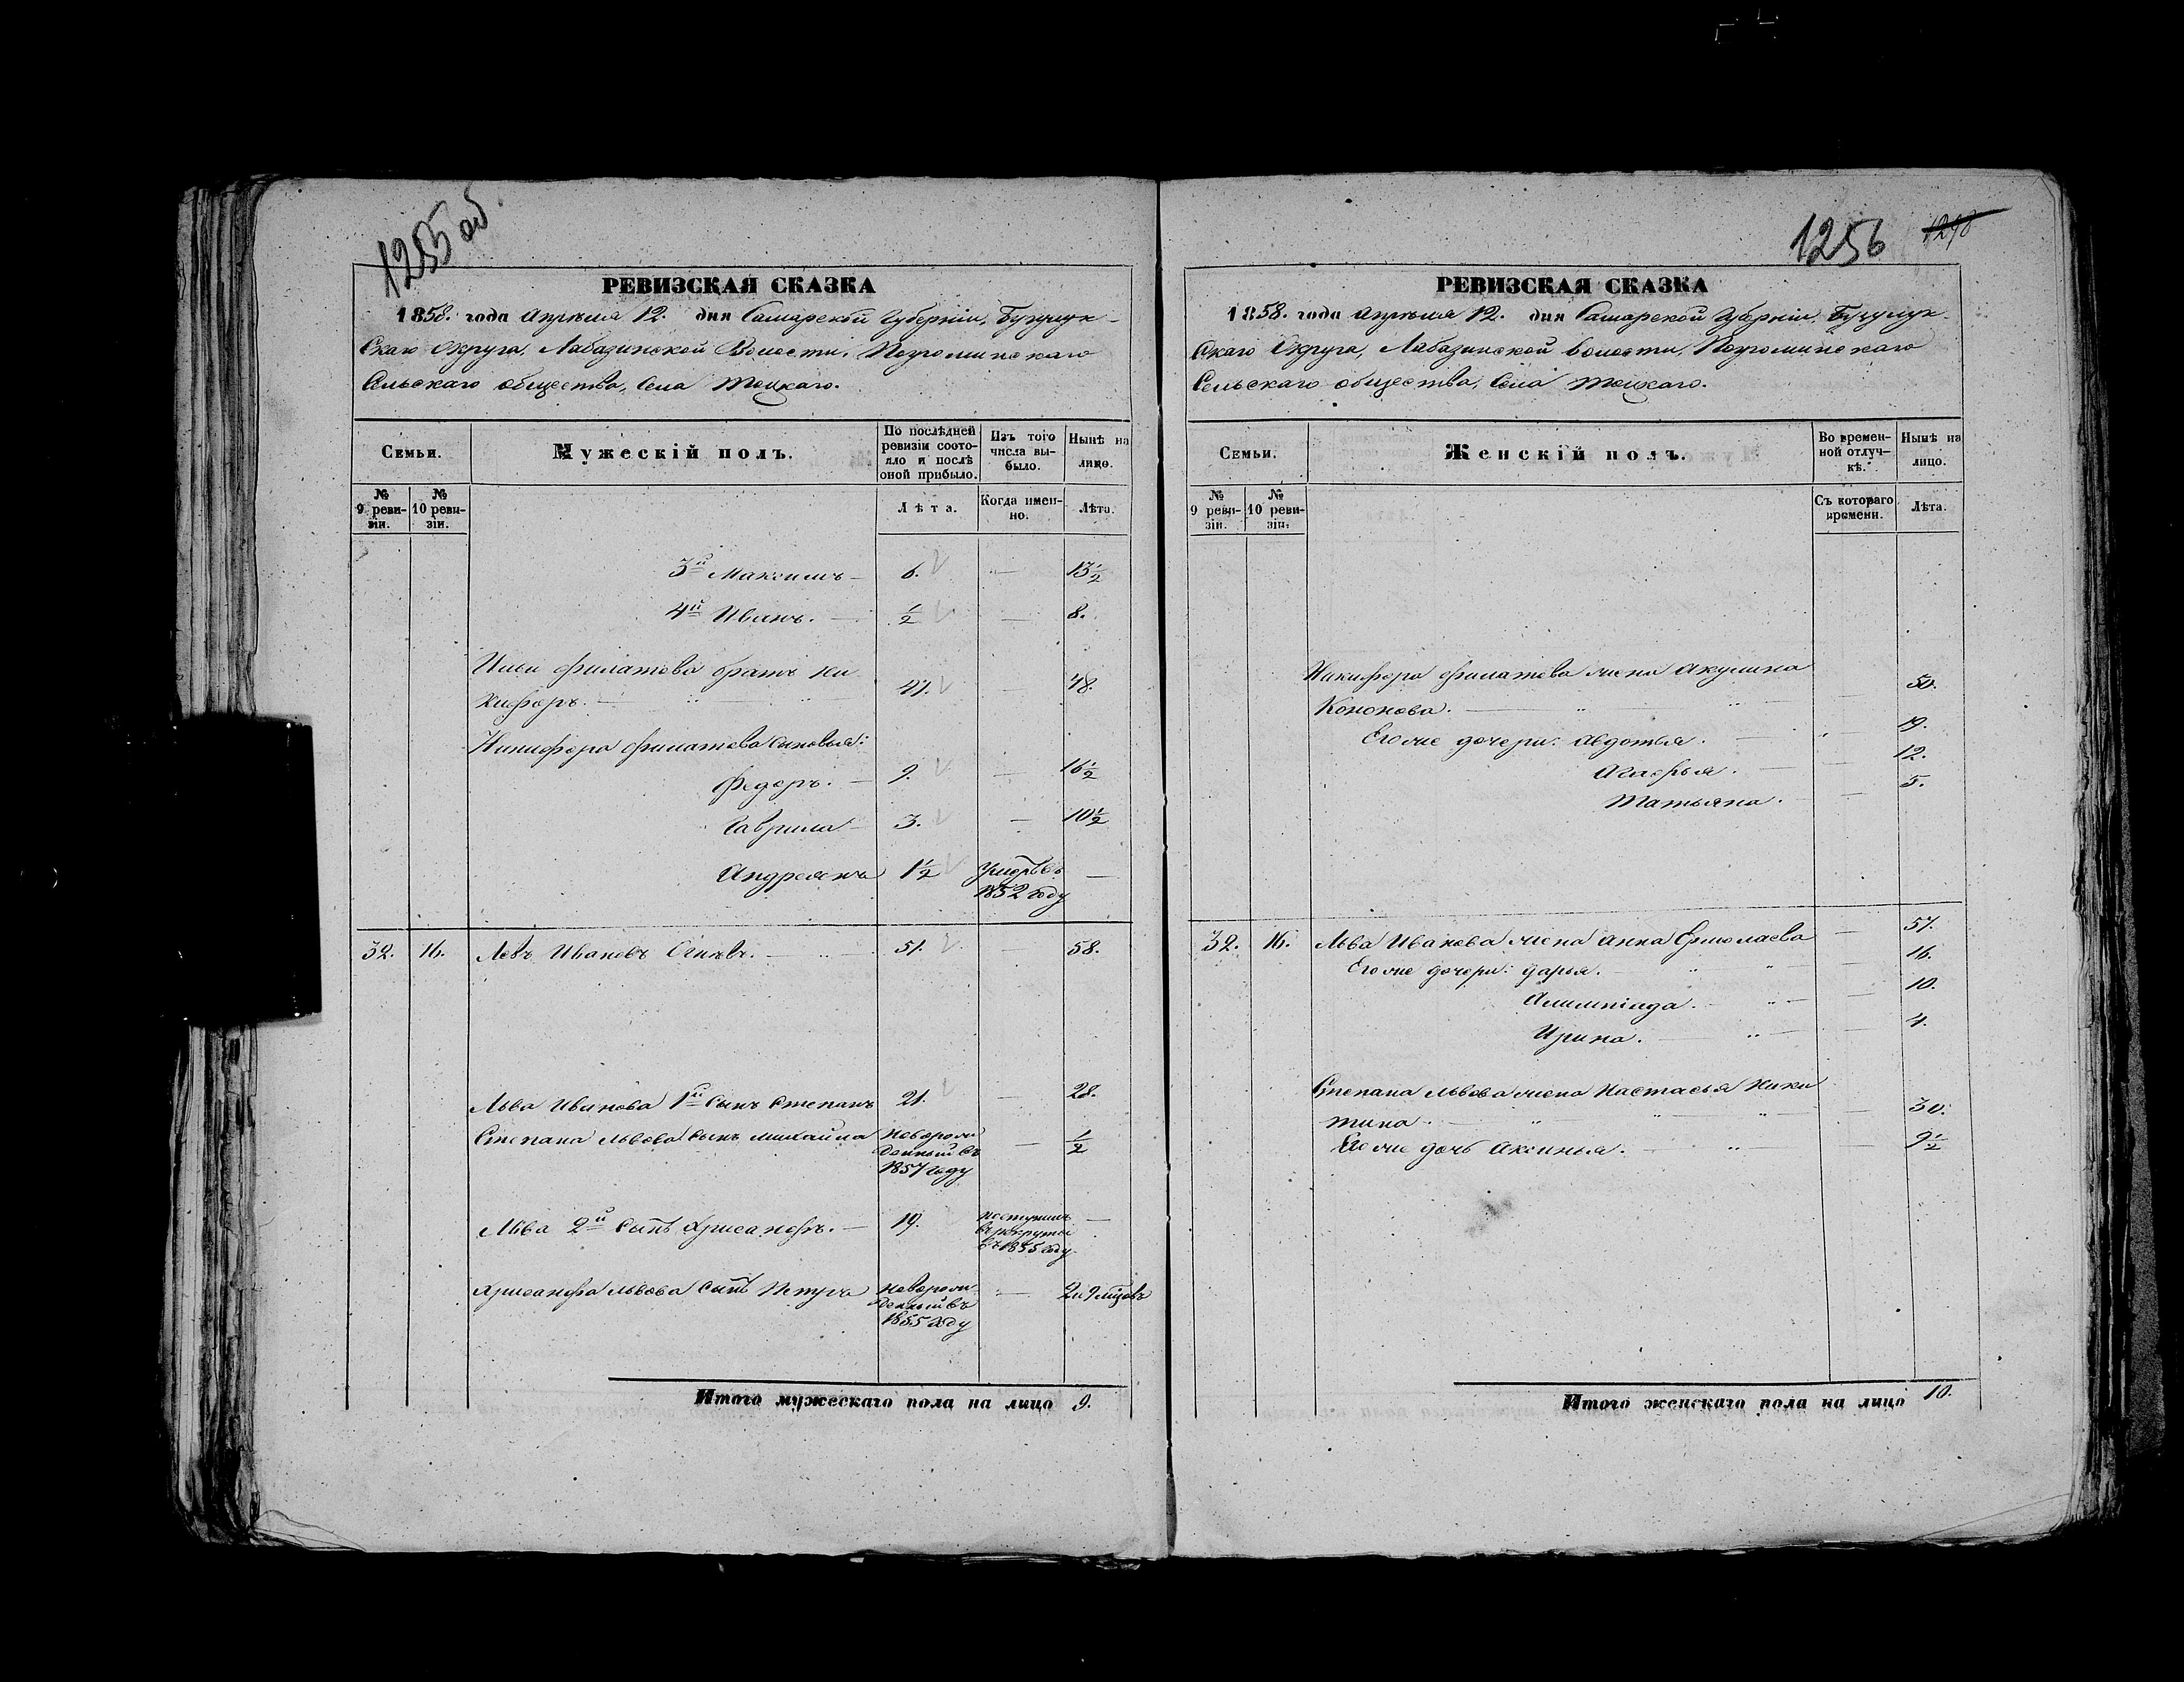 1255 об
РЕВИЗСКАЯ СКАЗКА
1858. года Апрѣля 12. дня Самарской Губернiи, Бузулук-
скаго Округа, Лабазинской Волости, Погроминскаго
Сельскаго общества, Села Тоцкаго.
Семьи.
Мужескiй полъ.
По послѣдней ревизiи состо-
яло и послѣ оной прибыло.
Изъ того числа вы-
было.
Нынѣ на лицо.
№ 9 реви-
зiи.
№ 10 реви-
зiи.
Лѣта.
Когда имен-
но.
Лѣта.
3й Максимъ — 6. — 13½
4й Иванъ. — ½ — 8.
Ильи Филатова братъ Ни
кифоръ. — 41. — 48.
Никифора Филатова сыновья:
Федоръ. — 9. — 16½
Гаврила — 3. — 10½
Андреянъ 1½ Умеръ въ —
1852 году
32. 16. Левъ Ивановъ — 51. — 58.
Льва Иванова 1й сынъ Степанъ 21. — 28.
Степана Львова сынъ Михайла новорож
денный въ — ½
1857 году
Льва 2й сынъ Хрисанфъ. — 19. поступилъ —
въ рекруты
въ 1855 году
Хрисанфа Львова сынъ Петръ новорож
денный въ — 2 и 9 мцовъ
1855 году
Итого мужескаго пола на лицо 9.
1256
РЕВИЗСКАЯ СКАЗКА
1858. года Апрѣля 12. дня Самарской Губернiи, Бузулук-
скаго Округа, Лабазинской волости, Погроминскаго
Сельскаго общества, Села Тоцкаго.
Семьи.
Женскiй полъ.
Во времен-
ной отлуч-
кѣ.
Нынѣ на лицо.
№ 9 реви-
зiи.
№ 10 реви-
зiи.
Съ котораго времени.
Лѣта.
Никифора Филатова жена Акулина
Кононова. — 50.
Его же дочери: Авдотья. — 19.
Агафья. — 12.
Татьяна. — 5.
32. 16. Льва Иванова жена Анна Ермолаева — 57.
Его же дочери: Дарья. — 16.
Алимпiада. — 10.
Ирина. — 4.
Степана Львова жена Настасья Ники
тина. — 30.
Его же дочь Аксинья. — 9½
Итого женскаго пола на лицо 10.